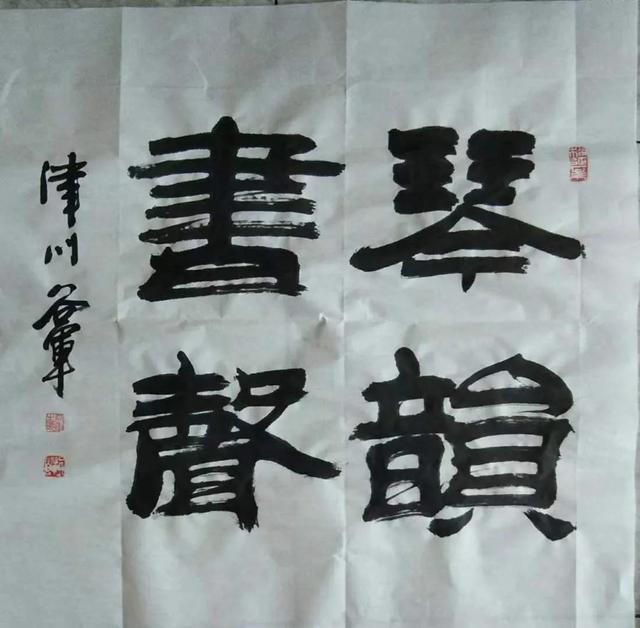 琴韻
書聲
津川